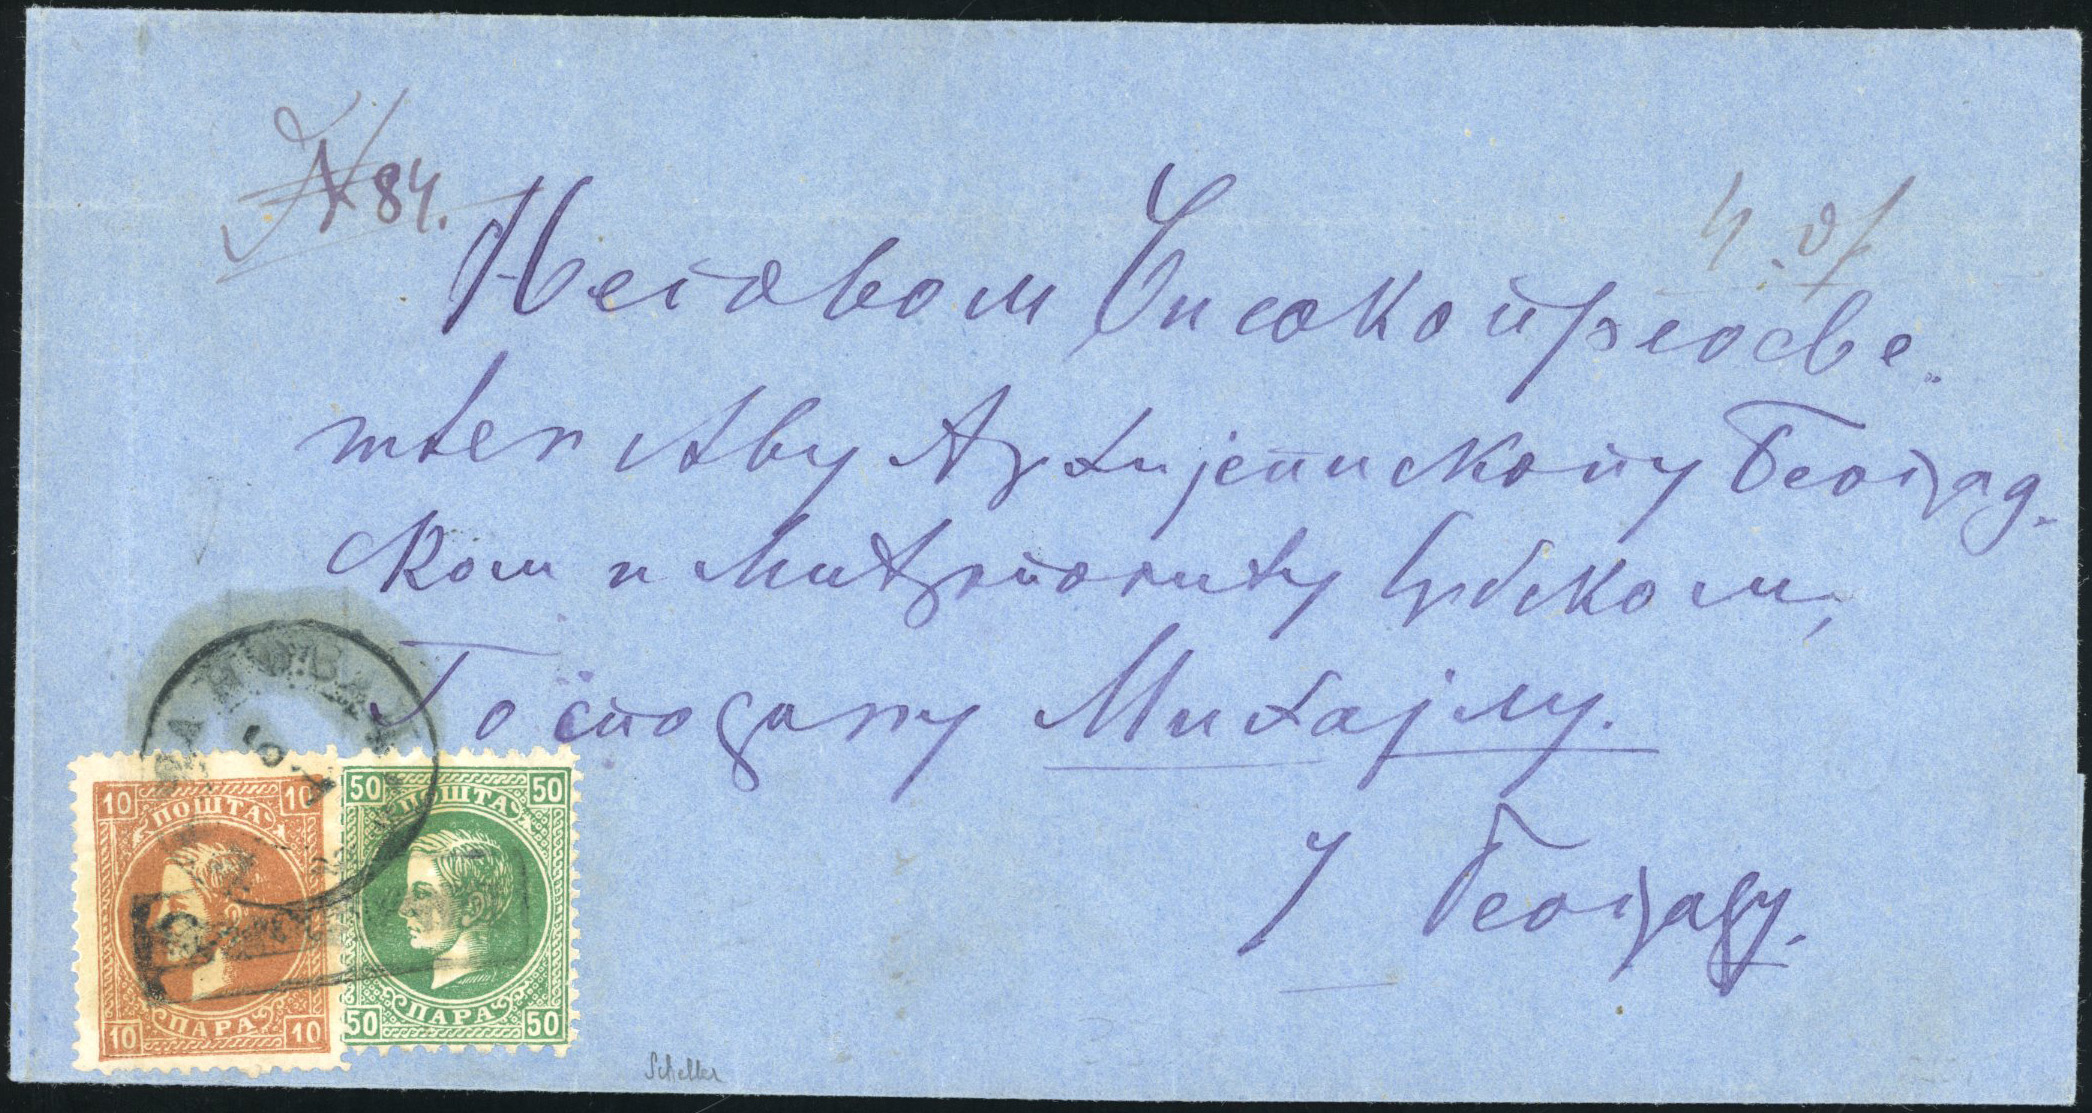 № 84.
Његовом Високопреосве-
штенству Архијепископу Београд-
ском и Митрополиту Србском,
Господину Михајлу.
У Београду.
10 ПОШТА 10
ПАРА
10 10
50 ПОШТА 50
ПАРА
50 50
Scheller